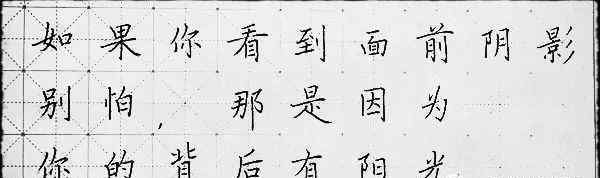 如果你看到面前阴影
别怕,那是因为
你的背后有阳光